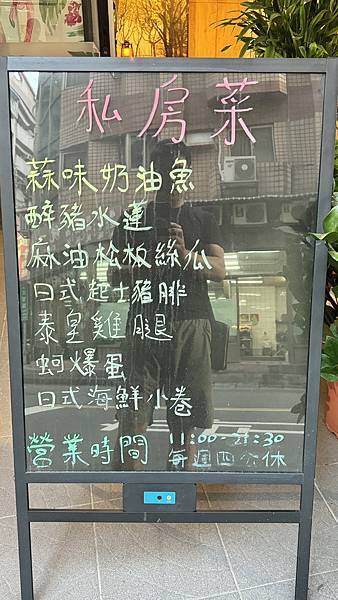 私房菜
蒜味奶油魚
醉豬水蓮
麻油松板絲瓜
日式起士豬排
泰皇雞腿
蚵爆蛋
日式海鮮小卷
營業時間 11:00-21:30
每週四公休